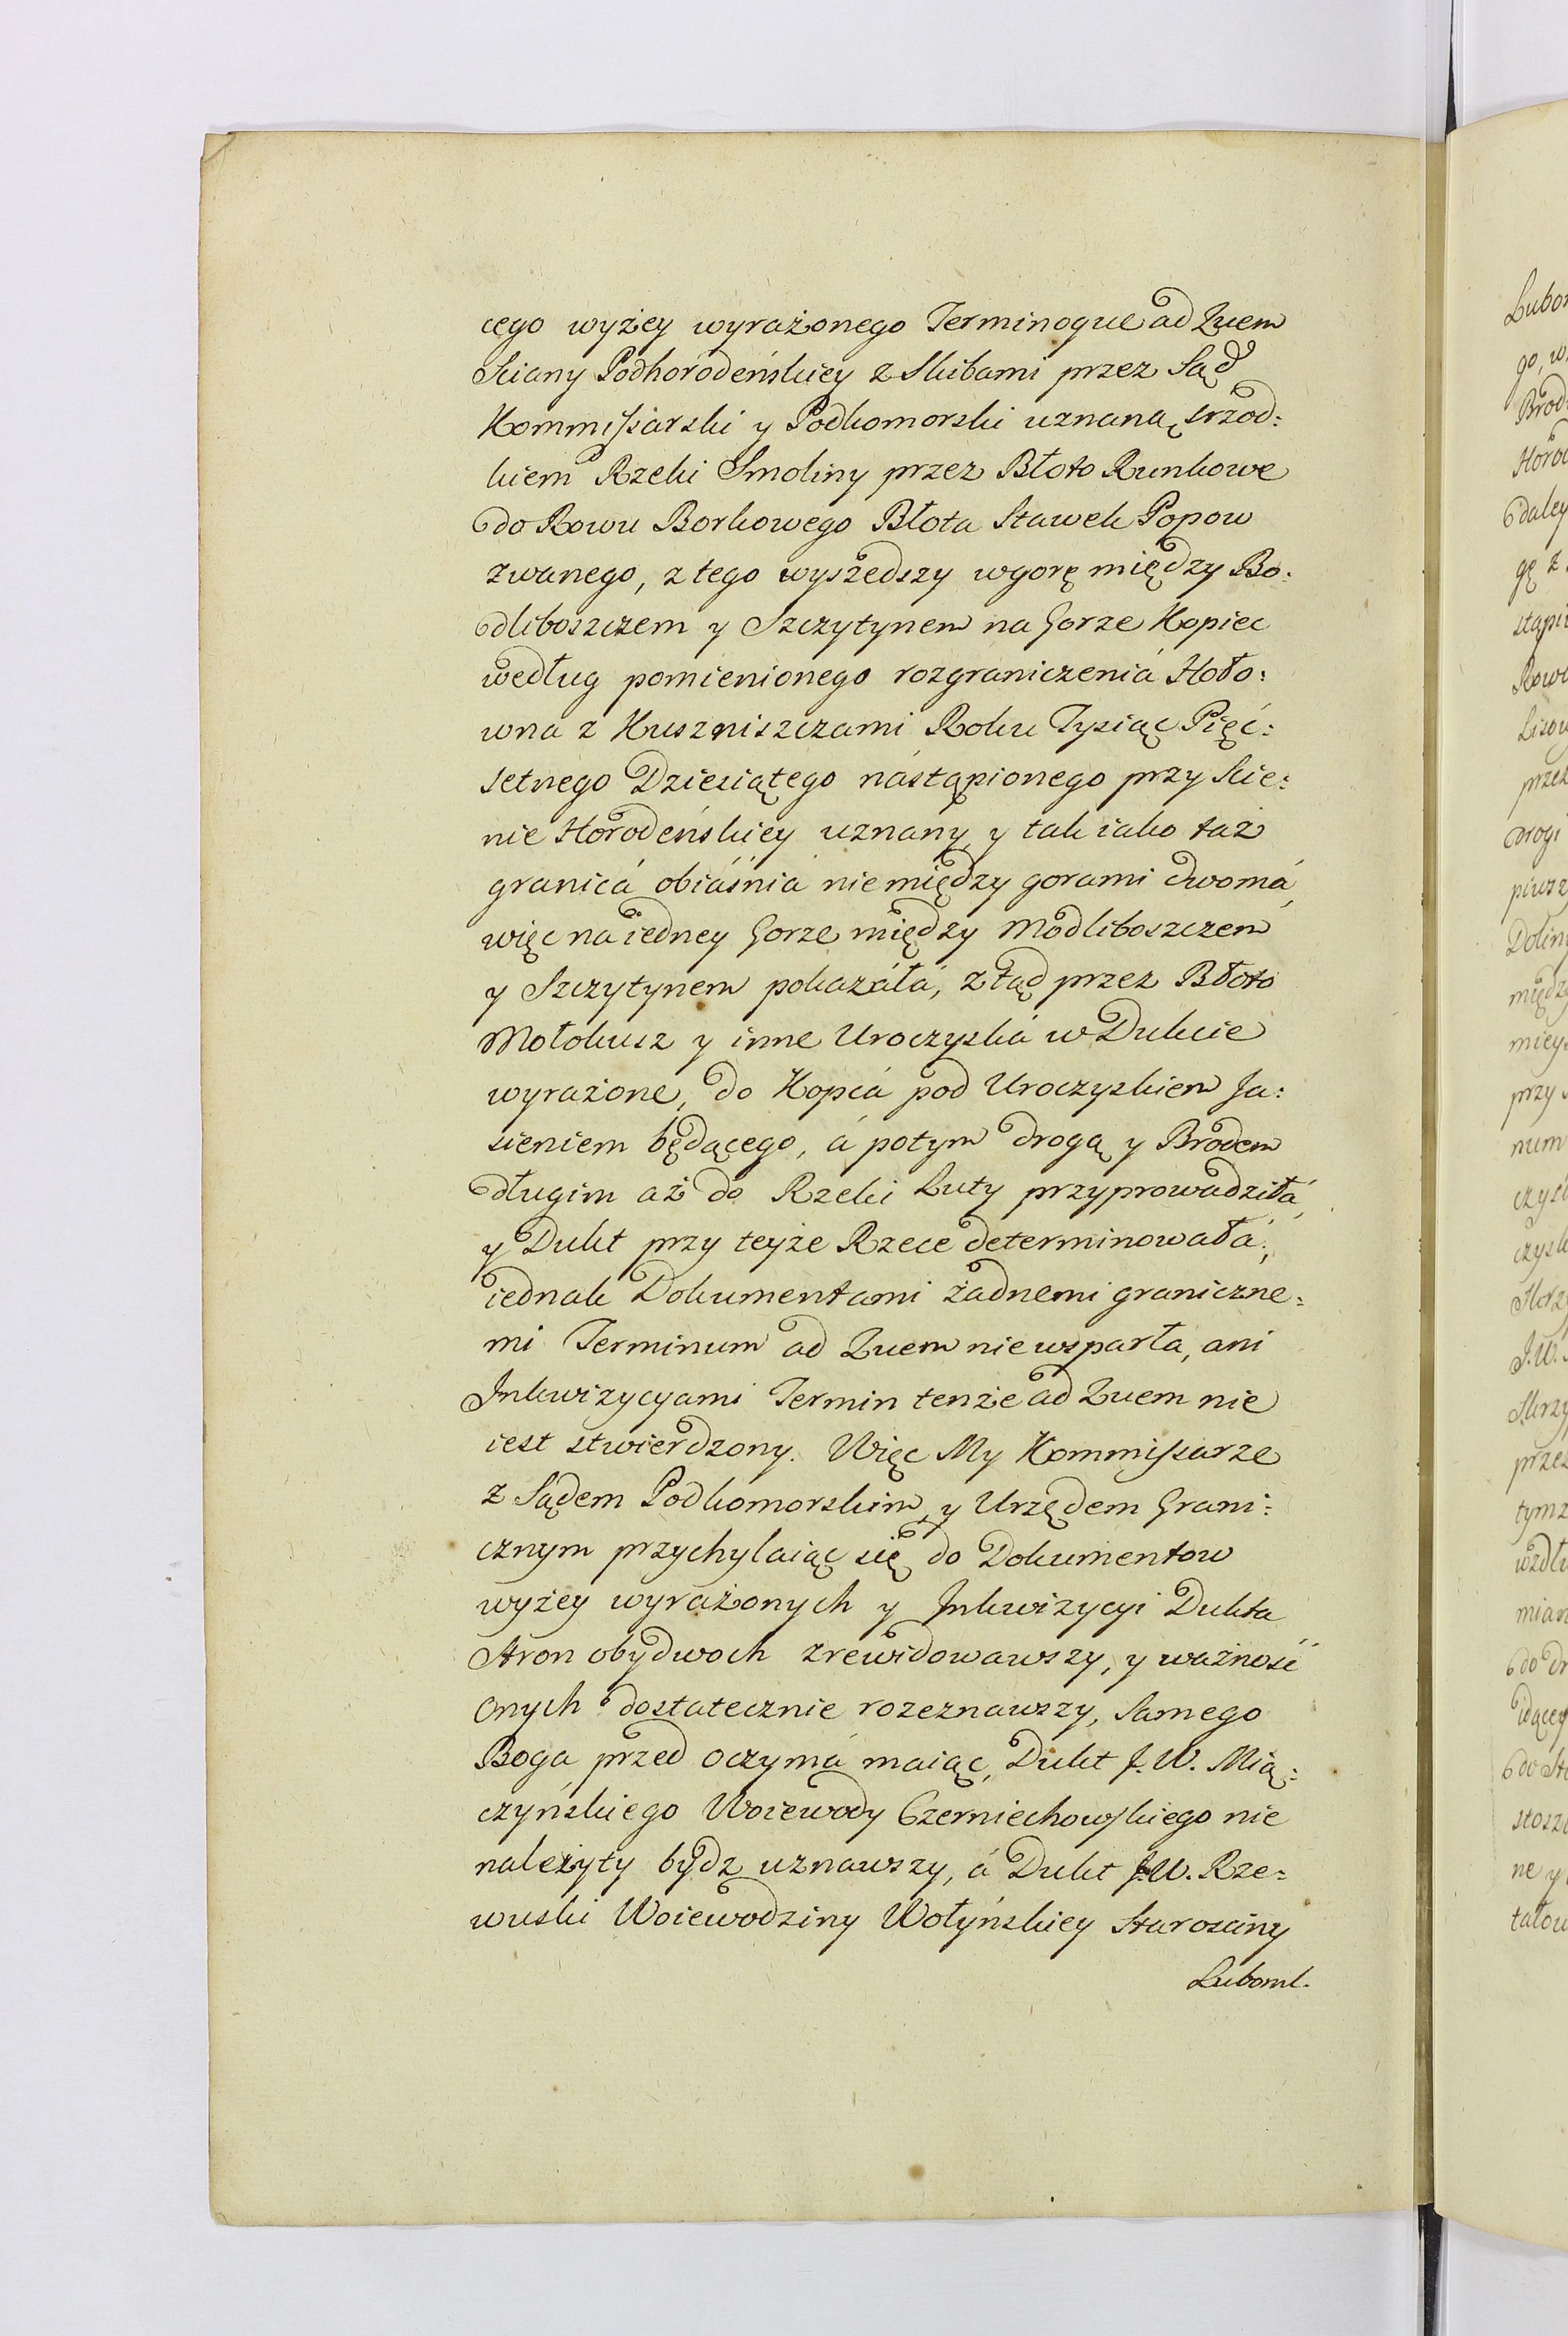 cego wyżey wyrażonego Terminoque ad Quem
Sciany Podhorodeńskiey z Skibami przez Sąd
Kommissarski y Podkomorski uznaną srzod:
kiem Rzeki Smoliny przez Błoto Runkowe
do Rowu Borkowego Błota Stawek Popow
zwanego, z tego wyszedszy wgorę między Bo:
dliboszczem y Szczytynem na Gorze Kopiec
według pomienionego rozgraniczeniá Hoło:
wna z Huszniszczami Roku Tysiąc Pięć:
setnego Dziesiątego nástąpionego przy Scie:
nie Horodeńskiey uznany y tak iako taż
granicá obiáśnia nie między gorami dwomá,
więc na iedney Gorze między Modliboszczem
y Szczytynem pokazáłá, ztąd przez Błoto
Mołokusz y inne Uroczyská w Dukcie
wyrażone, do Kopcá pod Uroczyskiem Ja:
sieniem będącego, á potym drogą y Brodem
długim aż do Rzeki Luty przyprowadziłá,
y Dukt przy teyże Rzece determinowałá,
iednak Dokumentami żadnemi graniczne:
mi Terminum ad Quem nie wsparła, ani
Inkwizycyami Termin tenże ad Quem nie
iest stwierdzony. Więc My Kommissarze
z Sądem Podkomorskim, y Urzędem Grani:
cznym przychylaiąc się do Dokumentow
wyżey wyrażonych y Inkwizycyi Dukta
Stron obydwoch zrewidowawszy, y ważność
onych dostatecznie rozeznawszy, Samego
Boga przed oczymá maiąc, Dukt J. W. Mią:
czyńskiego Woiewody Czerniechowskiego nie
należyty bydz uznawszy, á Dukt J. W. Rze:
wuski Woiewodziny Wołyńskiey Starosciny
Luboml.
go, w
daley
stąpi
mię
przy
num
przez
J. W.